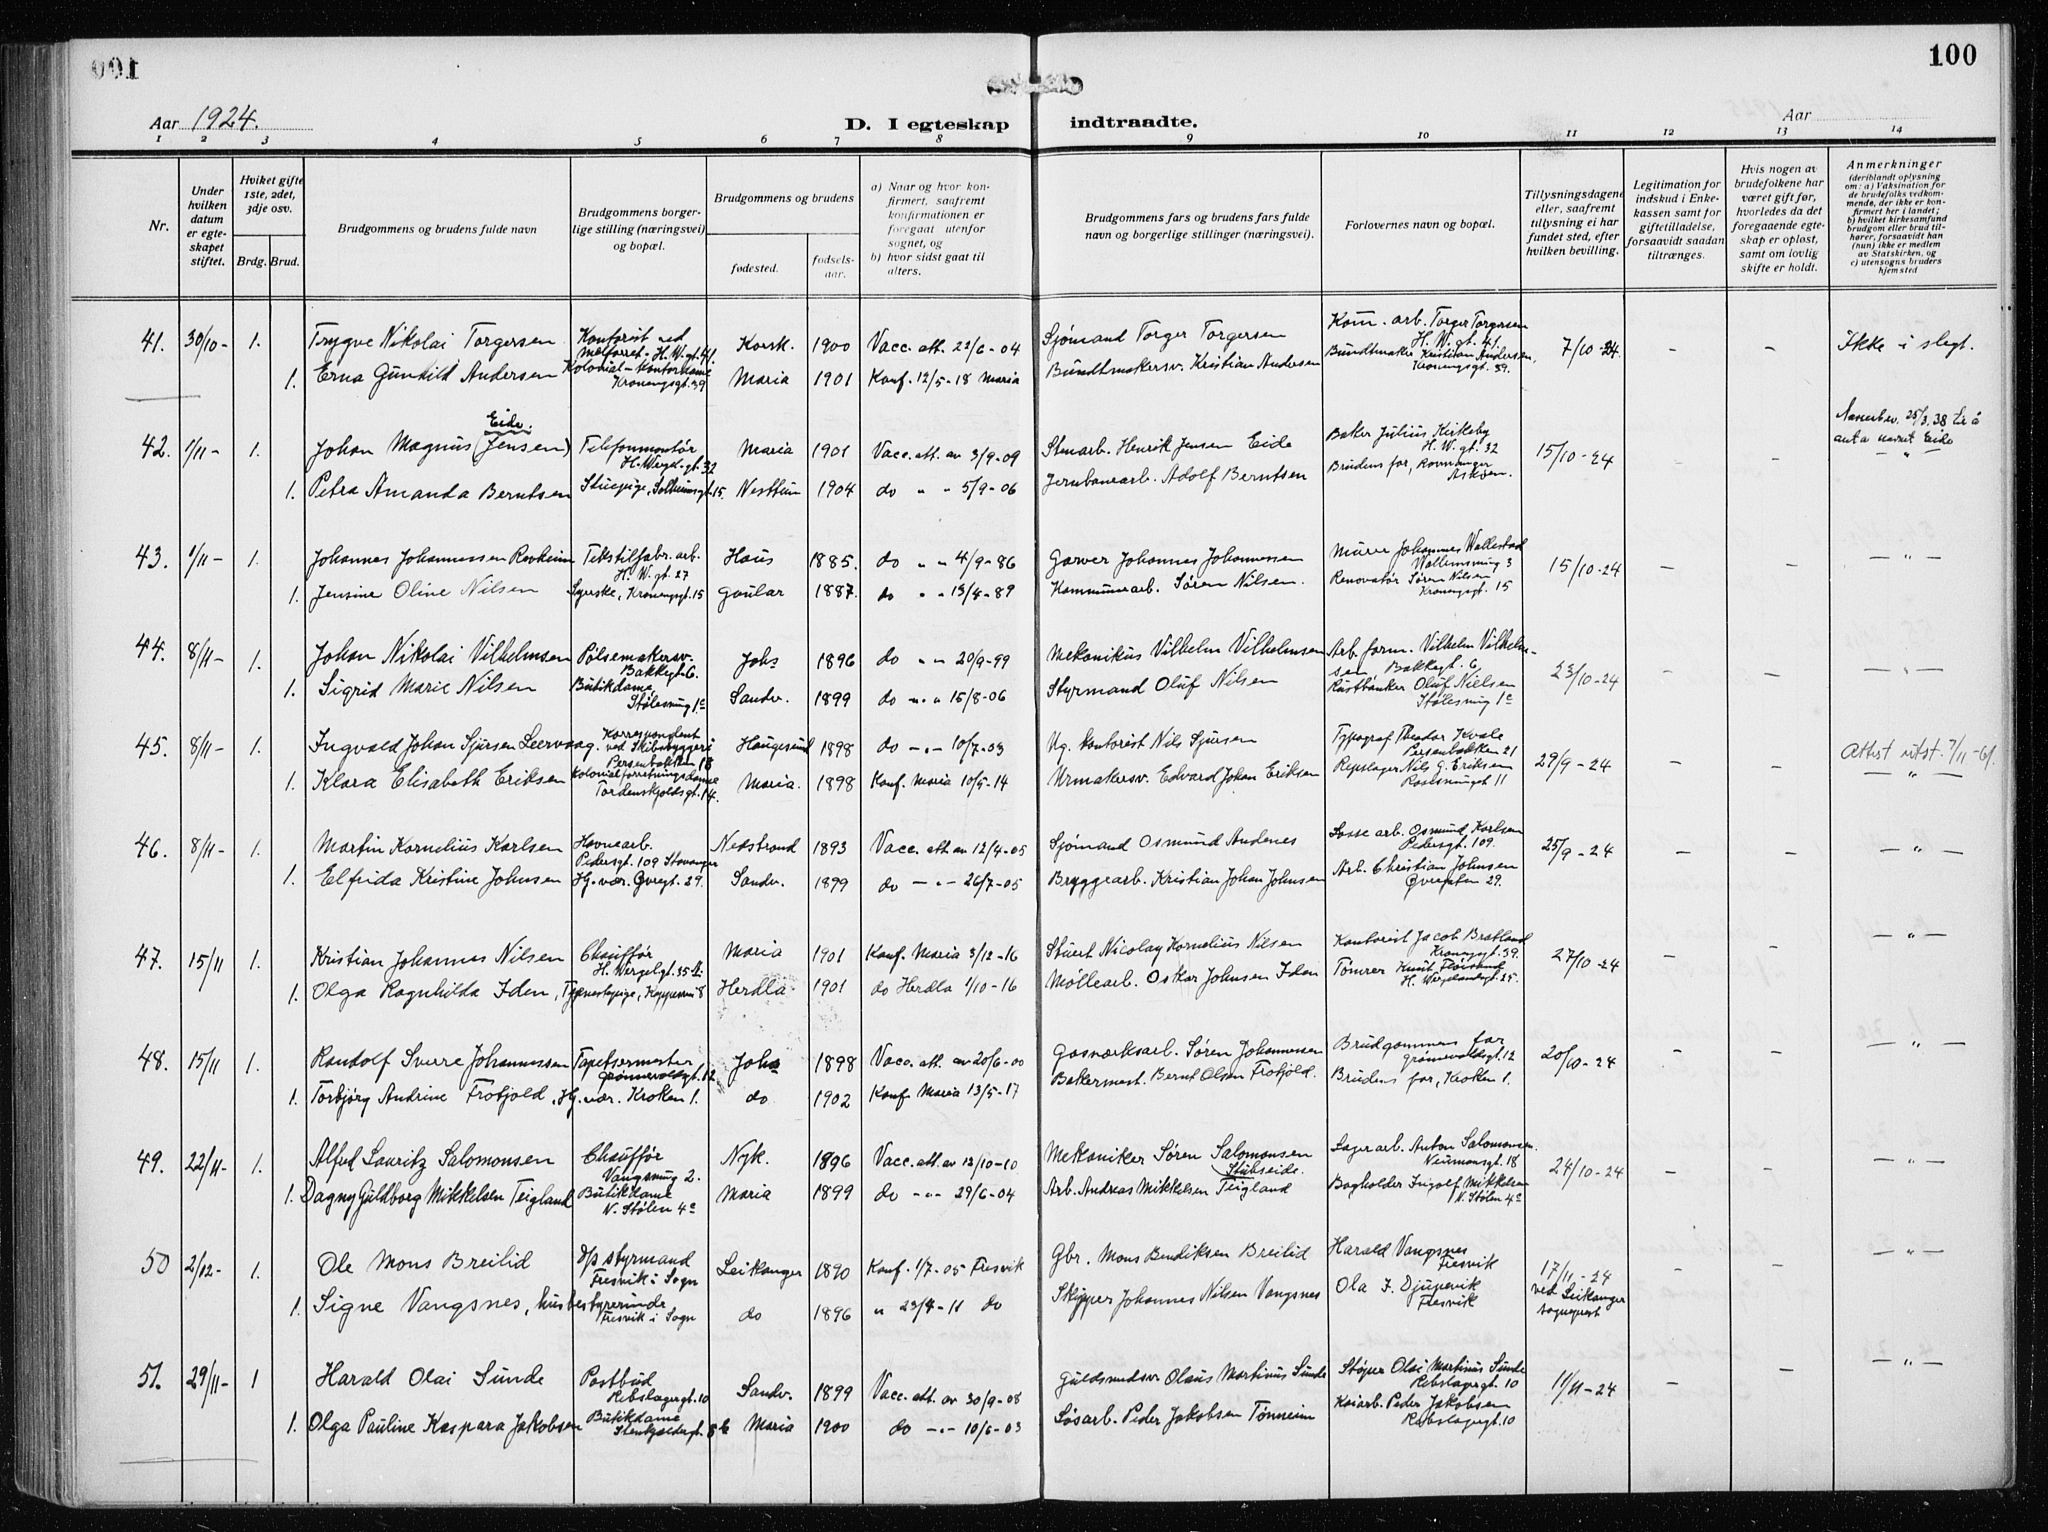 100
Aar 1924.
D. I egteskap indtraadte.
Aar
1 2 3 4 5 6 7 8 9 10 11 12 13 14
Nr.
Under hvilken datum er egteskapet stiftet.
Hviket gifte 1ste, 2det, 3dje osv.
Brdg. Brud.
Brudgommens og brudens fulde navn
Brudgommens borgerlige stilling (næringsvei) og bopæl.
Brudgommens og brudens
fødested.
fødselsaar.
a) Naar og hvor konfirmert, saafremt konfirmationen er foregaat utenfor sognet, og
b) hvor sidst gaat til alters.
Brudgommens fars og brudens fars fulde navn og borgerlige stillinger (næringsvei).
Forlovernes navn og bopæl.
Tillysningsdagene eller, saafremt tillysning ei har fundet sted, efter hvilken bevilling.
Legitimation for indskud i Enkekassen samt for giftetilladelse, forsaavidt saadan tiltrænges.
Hvis nogen av brudefolkene har været gift før, hvorledes da det foregaaende egteskap er opløst, samt om lovlig skifte er holdt.
Anmerkninger (deriblandt oplysning om: a) Vaksination for de brudefolks vedkommende, der ikke er konfirmert her i landet; b) hvilket kirkesamfund brudgom eller brud tilhører, forsaavidt han (hun) ikke er medlem av Statskirken, og c) utensogns bruders hjemsted
41. 30/10- 1. Trygve Nikolai Torgersen Kontorist ved H. W. gt. 41. Korsk. 1900 Vacc. att. 22/6-04 Sjømand Torger Torgersen Kom. arb. Torger Torgersen H. W. gt. 41. 7/10-24. - - Ikke i slegt.
1. Erna Gunhild Andersen Kolonial-kontordame Kroningsgt. 39 Maria 1901 Konf. 12/5-18 Maria Bundtmakersv. Kristian Andersen Bundtmaker Kristian Andersen, Kroningsgt. 39.
42. 1/11- 1. Johan Magnus (Jensen) Eide. Telefonmontør H. Wergel. gt. 32 Maria 1901 Vacc. att. av 3/9-09 Stenarb. Henrik Jensen Eide Baker Julius Kirkeby H. W. gt. 32 15/10-24 - - Navnebev. 25/3.38 til å anta navnet Eide - " -
1. Petra Amanda Berntsen Stuepige, Solheimsgt. 15. Nesttun 1904 do " " 5/9-06 Jernbanearb. Adolf Berntsen Brudens far, Askøen.
43. 1/11- 1. Johannes Johannessen Rovheim Tekstilfabr. arb. H. W. gt. 27 Haus 1885. do " " 4/9-86 Garver Johannes Johannessen Murer Johannes Wallestad 3 15/10-24 - - - " -
1. Jensine Oline Nilsen Syerske, Kroningsgt. 15 Gaular 1887. do " " 13/4-89 Kommunearb. Søren Nilsen. Renovatør Søren Nilsen Kroningsgt. 15
44. 8/11- 1. Johan Nikolai Vilhelmsen Pølsemakersv. Bakkegt. 6. Johs 1896 do " " 20/9-99 Mekanikus Vilhelm Vilhelmsen Arb. form. Vilhelm Vilhelmsen Bakkegt. 6 23/10-24 - - - " -
1. Sigrid Marie Nilsen Butikdame, Stølesmug 1c Sandv. 1899 do " " 15/8-06 Styrmand Oluf Nilsen Rustbanker Oluf Nielsen Stølesmug 1c
45. 8/11- 1. Ingvald Johan Sjursen Leervaag. Korrespondent ved Skibsbyggeri Persenbakken 18 Haugesund 1898 do - " - 10/7-03 Ug. kontorist Nils Sjursen Typograf Theodor Kvale Persenbakken 21 29/9-24 - - Attest utst. 7/11-61. - " -
1. Klara Elisabeth Eriksen Kolonialforretningsdame Tordenskjoldsgt. 14. Maria. 1898 Konf. Maria 10/5-14 Urmakersv. Edvard Johan Eriksen Repslager Nils G. Eriksen 11
46. 8/11- 1. Martin Kornelius Karlsen Havnearb. Pedersgt. 109 Stavanger Nedstrand 1893 Vacc. att. av 12/4-05 Sjømand Osmund Andenes Losse arb. Osmund Karlsen Pedersgt. 109. 25/9-24 - - - " -
1. Elfrida Kristine Johnsen Hj. vær. Øvregt. 29. Sandv. 1899 do - " - 26/7-05 Bryggearb. Kristian Johan Johnsen Arb. Christian Johnsen Øvregaten 29.
47. 15/11 1. Kristian Johannes Nilsen Chauffør H. Wergelgt. 35 Maria 1901 Konf. Maria 3/12-16 Stuert Nicolay Kornelius Nilsen Kontorist Jacob Bratland Kroningsgt. 39. 27/10-24 - - - " -
1. Olga Ragnhilda Iden, Tjenestepige, 8 Herdla 1901 do Herdla 1/10-16 Møllearb. Oskar Johnsen Iden Tømrer Knut Fløisand H. Wergelandsgt. 25.
48. 15/11 1. Randolf Sverre Johannessen Tapetsermester Grønnevoldsgt. 12 Johs 1898 Vacc. att. av 20/6-00 Gasværksarb. Søren Johannessen Brudgommens far Grønnevoldsgt. 12 20/10-24 - - - " -
1. Torbjørg Andrine Frotjold, Hj. vær. Kroken 1. do 1902 Konf. Maria 13/5-17 Bakermest. Bernt Olsen Frotjold. Brudens far, Kroken 1.
49. 22/11- 1. Alfred Lauritz Salomonsen Chauffør Vangsmug 2. Nyk. 1896 Vacc. att. av 13/10-10 Mekaniker Søren Salomonsen Stubseide. Lagerarb. Anton Salomonsen Neumansgt. 18 24/10-24 - - - " -
1. Dagny Guldborg Mikkelsen Teigland Butikdame N. Stølen 4c Maria 1899 do - " - 29/6-04 Arb. Andreas Mikkelsen Teigland Bogholder Ingolf Mikkelsen N. Stølen 4c
50 2/12- 1. Ole Mons Breilid D/s styrmand Fresvik i Sogn Leikanger 1890 Konf. 1/7-05 Fresvik Gbr. Mons Bendiksen Breilid Harald Vangsnes Fresvik 17/11-24 ved Leikanger sogneprest - - - " -
1. Signe Vangsnes, husbestyrerinde Fresvik i Sogn do 1896 " 23/4-11 do Skipper Johannes Nilsen Vangsnes Ola J. Djupevik Fresvik
51. 29/11- 1 Harald Olai Sunde Postbud Rebslagergt. 10 Sandv. 1899 Vacc. att. av 30/9-08 Guldsmedsv. Olaus Martinus Sunde Støper Olai Martinus Sunde Rebslagergt. 10 11/11-24 - - - " -
1. Olga Pauline Kaspara Jakobsen Butikdame Stenkjeldergt. 8b Maria 1900 do - " - 10/6-03 Løsarb. Peder Jakobsen Tønneim Kaiarb. Peder Jakobsen Rebslagergt. 10